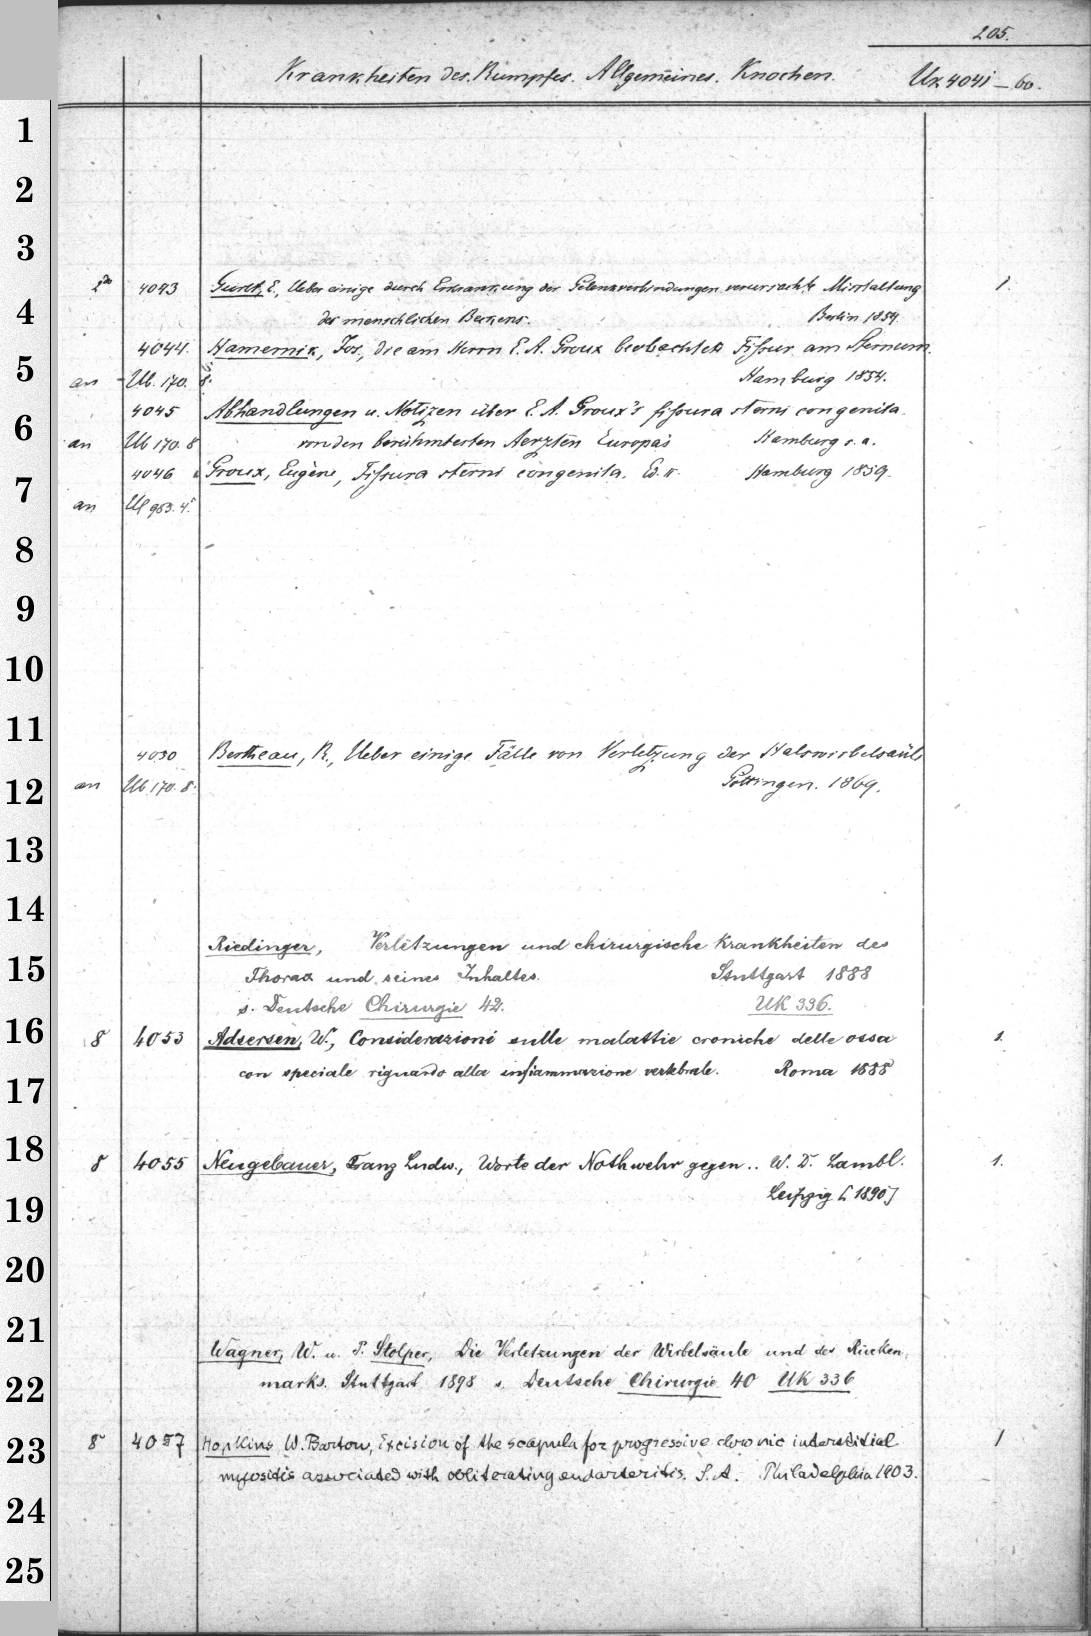 205.
Krankheiten des Rumpfes. Allgemeines. Knochen. Uk 4041 – 60.
1
2
3
4043 Gurlt, E., Ueber einige durch Erkrankung der Gelenkverbindungen verursachte Misstaltung 1.
4 des menschlichen Beckens. Berlin 1854.
4044. Hamernik, Jos., die am Herrn E. A. Groux beobachtete Fissur am Sternum.
5 an Ub. 170. 8. Hamburg 1854.
4045 Abhandlungen u. Notizen über E. A. Groux's fissura sterni congenita.
6 an Ub 170. 8 von den berühmtesten Aerzten Europas Hamburg s. a.
4046 Groux, Eugène, Fissura sterni congenita. Ed. II. Hamburg 1859.
7 an 953. 4.
8
9
10
11
4050 Bertheau, R., Ueber einige Fälle von Verletzung der Halswirbelsäule
12 an Ub. 170. 8. Göttingen. 1869.
13
14
Riedinger, Verletzungen und chirurgische Krankheiten des
15 Thorax und seines Inhaltes. Stuttgart 1888
s. Deutsche Chirurgie 42. UK 336.
16 8 4053 Adsersen, W., Considerazioni sulle malattie croniche delle ossa 1.
17 con speciale riguardo alla infiammazione vertebrale. Roma 1888
18 8 4055 Neugebauer, Franz Ludw., Worte der Nothwehr gegen .. W. D. Lambl. 1.
19 Leipzig [1890]
20
21
Wagner, W. u. P. Stolper, Die Verletzungen der Wirbelsäule und des Rücken-
22 marks. Stuttgart 1898 s. Deutsche Chirurgie 40 UK 336
23 8 4057 Hopkins W. Barton, Excision of the scapula for progressive chronic interstitial 1
myositis associated with obliterating endarteritis. S. A. Philadelphia 1903.
24
25